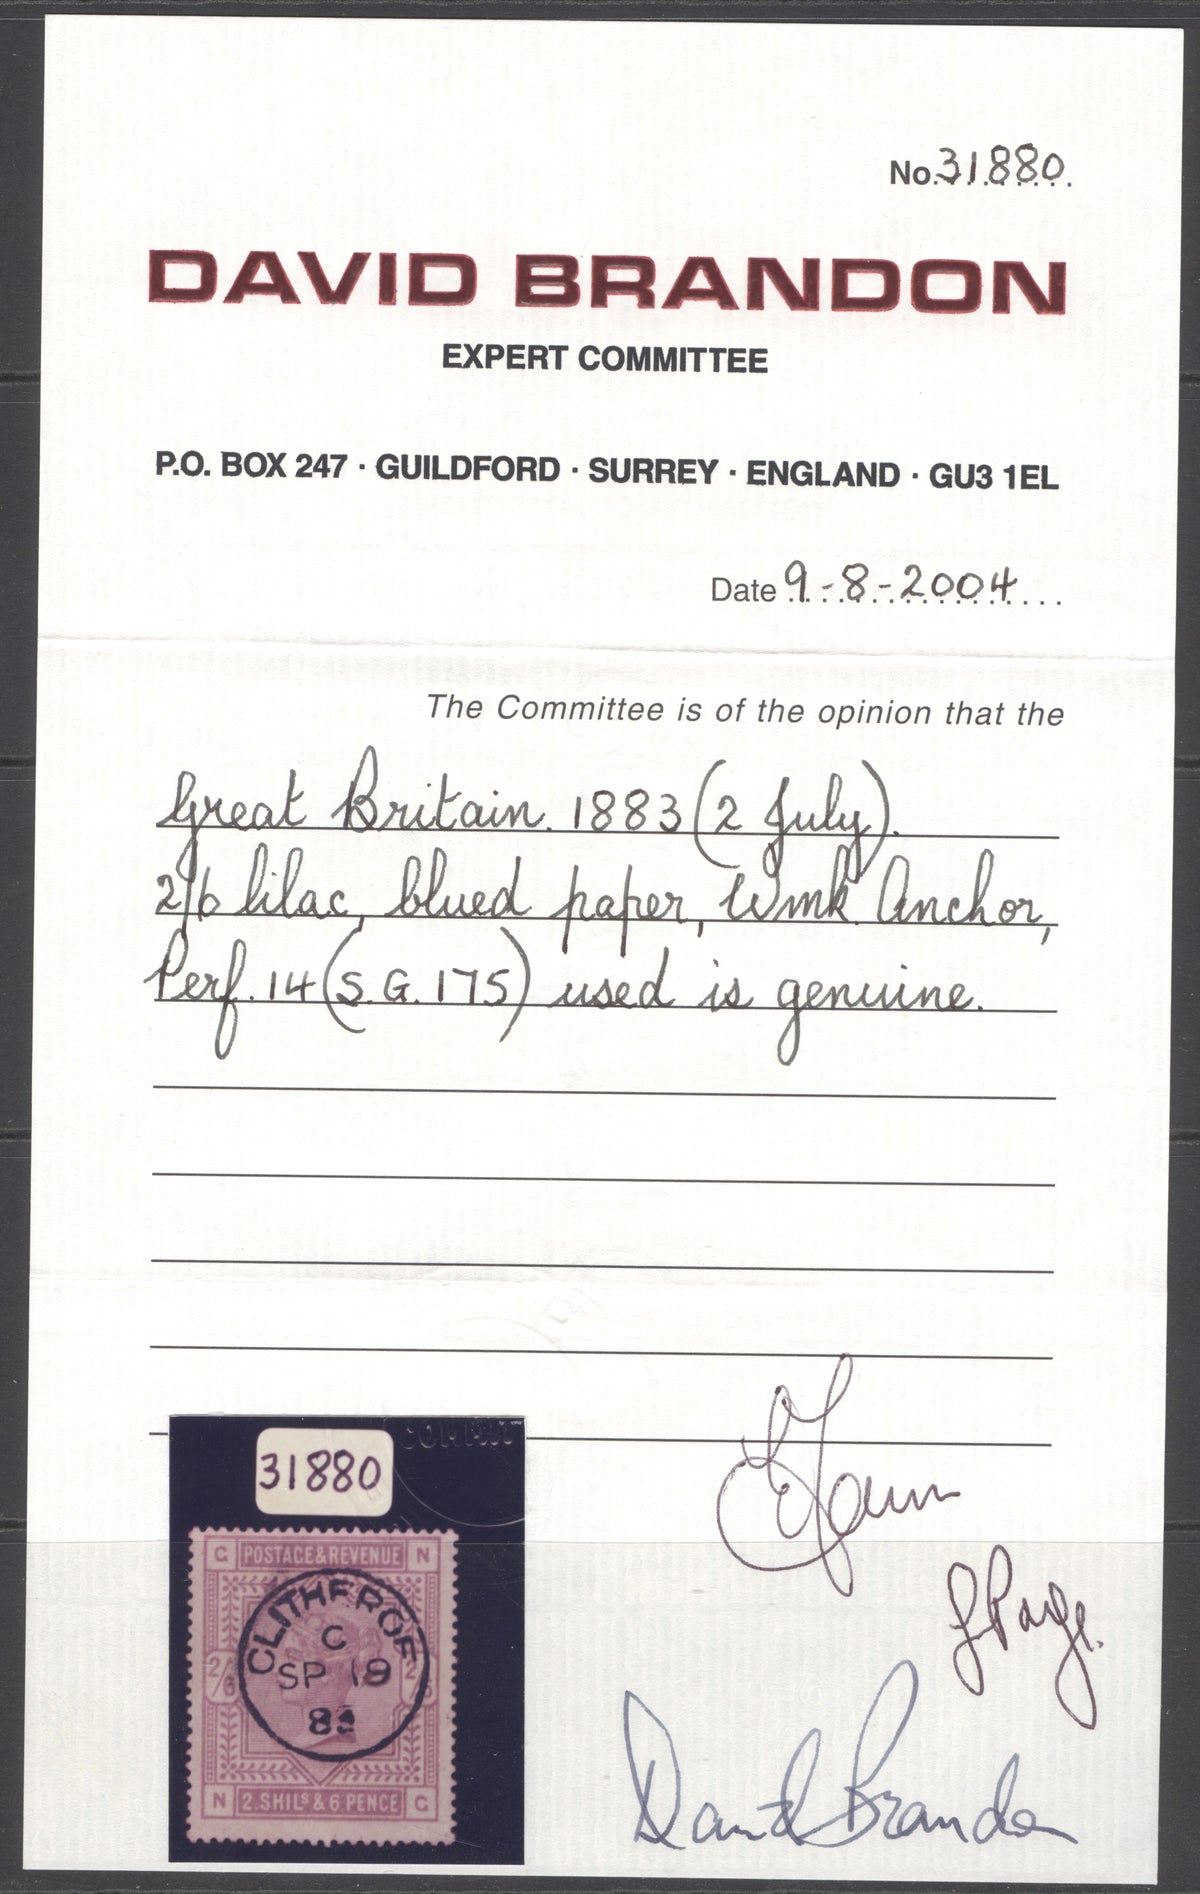 No. 31880
DAVID BRANDON
EXPERT COMMITTEE
P.O. BOX 247 · GUILDFORD · SURREY · ENGLAND · GU3 1EL
Date 9-8-2004
The Committee is of the opinion that the
Great Britain. 1883 (2 July).
2/6 lilac, blued paper, Wmk. Anchor,
Perf. 14 (S.G. 175) used is genuine.
31880
G POSTAGE & REVENUE N
CLITHEROE
C
SP 18
2/6
N 2.SHILS & 6 PENCE G
Page.
David Brandon